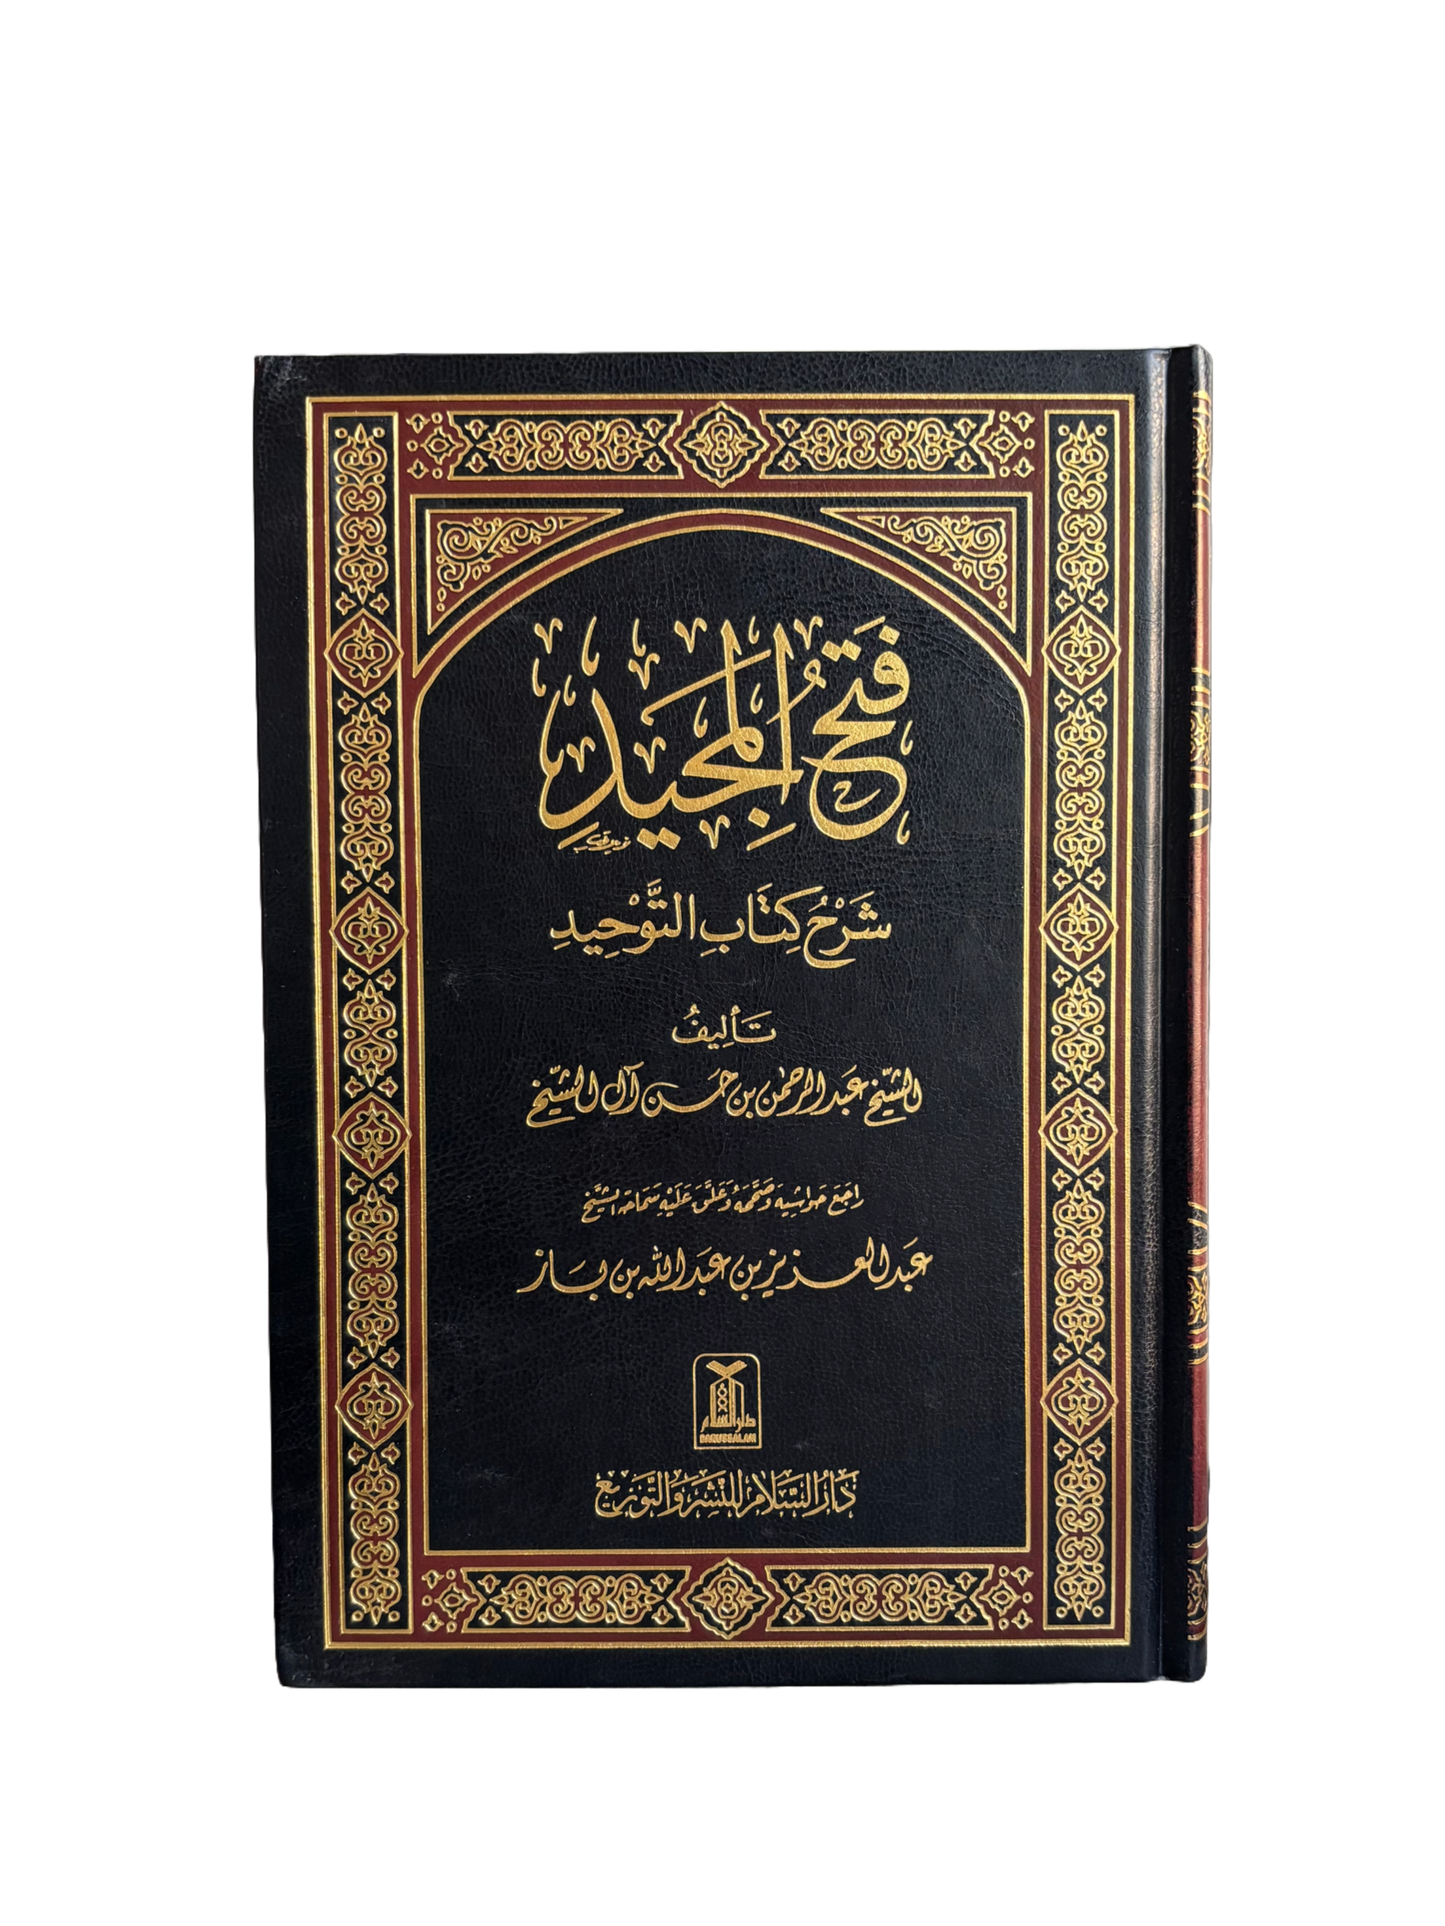 فَتْحُ الْمَجِيدِ
شَرْحُ كِتَابِ التَّوْحِيدِ
تَأْلِيفُ
الشَّيْخ عَبد الرحمٰن بن حَسَن آل الشَّيْخ
رَاجَعَ حَوَاشِيه وَصَحَّحَهُ وَعَلَّقَ عَلَيْهِ سَمَاحَة الشَّيْخ
عَبد العزيز بن عَبد الله بن بَاز
دار السلام
DARUSSALAM
دَارُ السَّلَام لِلنَّشِرْ وَالتَّوزيع